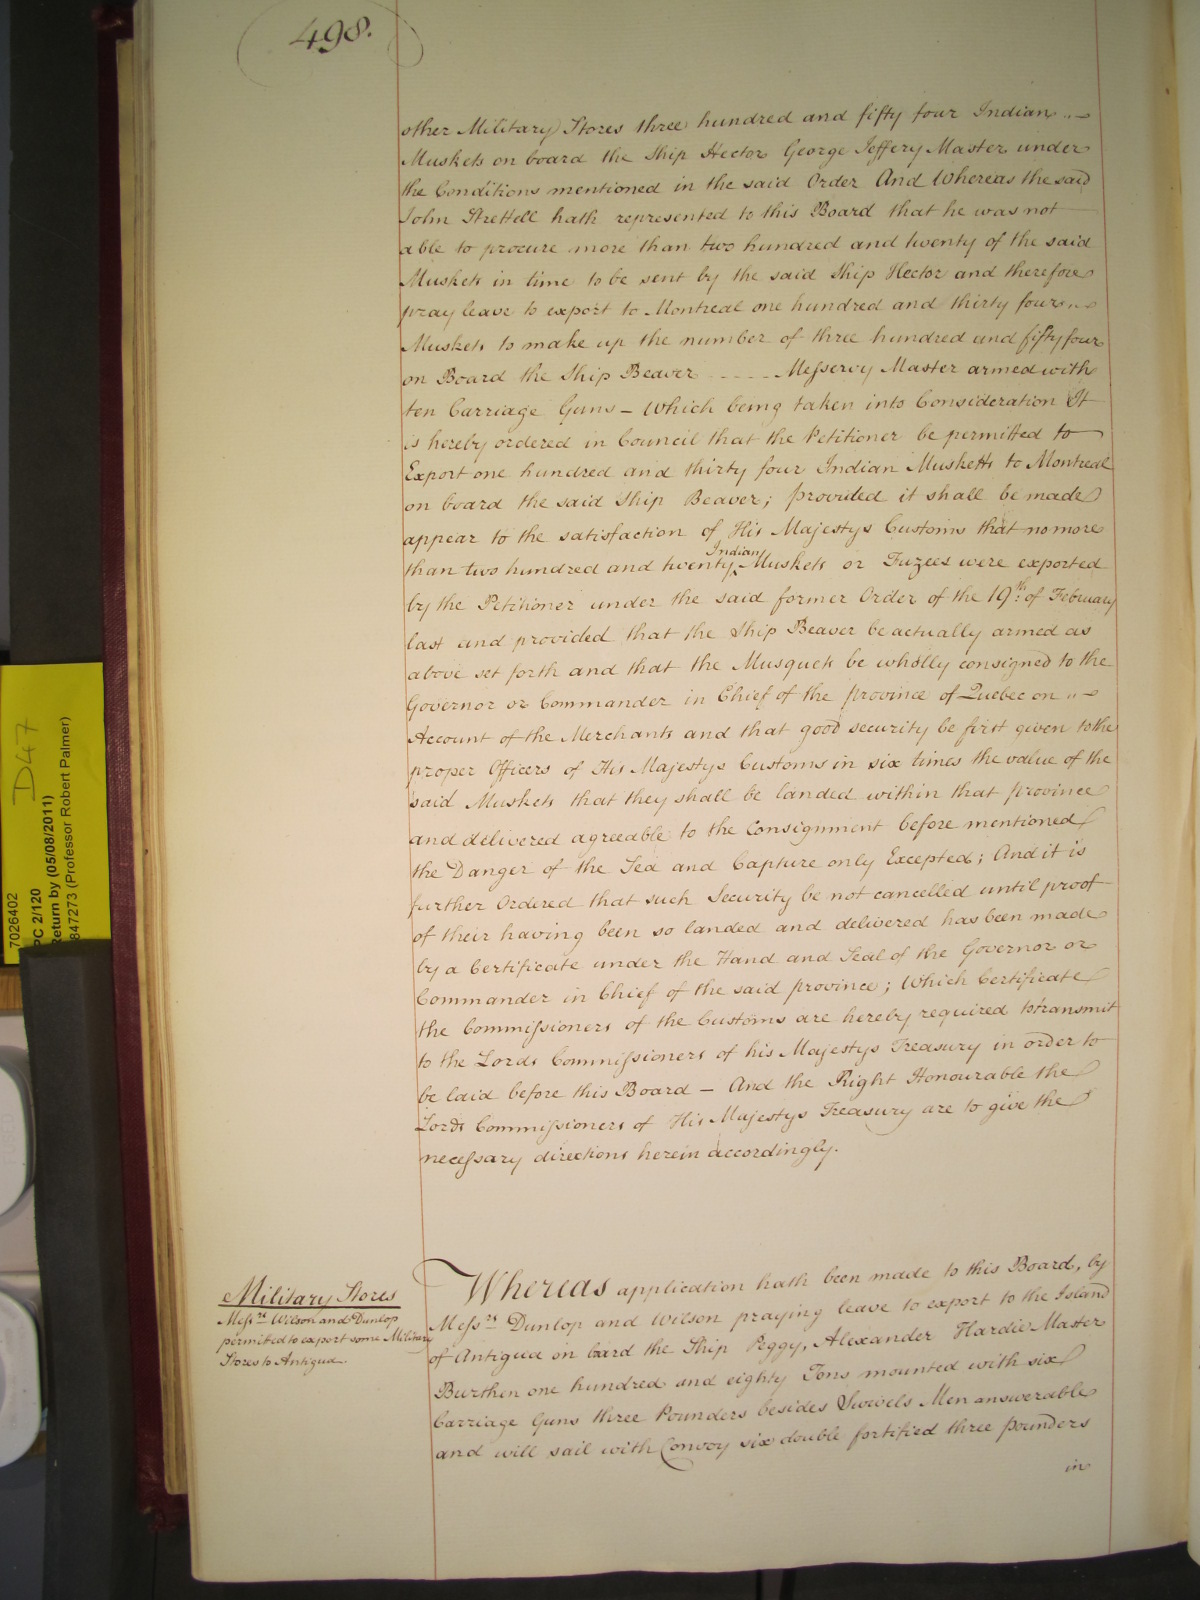 498.
other Military Stores three hundred and fifty four Indian
Muskets on board the Ship Hector George Jeffery Master under
the Conditions mentioned in the said Order And Whereas the said
John Strettell hath represented to this Board that he was not
able to procure more than two hundred and twenty of the said
Muskets in time to be sent by the said Ship Hector and therefore
pray leave to export to Montreal one hundred and thirty four
Muskets to make up the number of three hundred and fifty four
on Board the Ship Beaver ..... Messervy Master armed with
ten Carriage Guns – Which being taken into Consideration It
is hereby ordered in Council that the Petitioner be permitted to
Export one hundred and thirty four Indian Musketts to Montreal
on board the said Ship Beaver; provided it shall be made
appear to the satisfaction of His Majestys Customs that no more
than two hundred and twenty Indian Muskets or Fuzees were exported
by the Petitioner under the said former Order of the 19th: of February
last and provided that the Ship Beaver be actually armed as
above set forth and that the Musquets be wholly consigned to the
Governor or Commander in Chief of the province of Quebec on
Account of the Merchants and that good security be first given to the
proper Officers of His Majestys Customs in six times the value of the
said Muskets that they shall be landed within that province
and delivered agreeable to the Consignment before mentioned
the Danger of the Sea and Capture only Excepted; And it is
further Ordered that such Security be not cancelled until proof
of their having been so landed and delivered has been made
by a Certificate under the Hand and Seal of the Governor or
Commander in Chief of the said province; Which Certificate
the Commissioners of the Customs are hereby required to transmit
to the Lords Commissioners of his Majestys Treasury in order to
be laid before this Board – And the Right Honourable the
Lords Commissioners of His Majestys Treasury are to give the
necessary directions herein accordingly.
Military Stores
Messrs Wilson and Dunlop
permitted to export some Military
Stores to Antigua.
Whereas application hath been made to this Board, by
Messrs Dunlop and Wilson praying leave to export to the Island
of Antigua on bard the Ship Peggy, Alexander Hardie Master
Burthen one hundred and eighty Tons mounted with six
Carriage Guns three Pounders besides Swivels Men answerable
and will sail with Convoy six double fortified three pounders
in
7026402
D47
PC 2/120
Return by (05/08/2011)
847273 (Professor Robert Palmer)